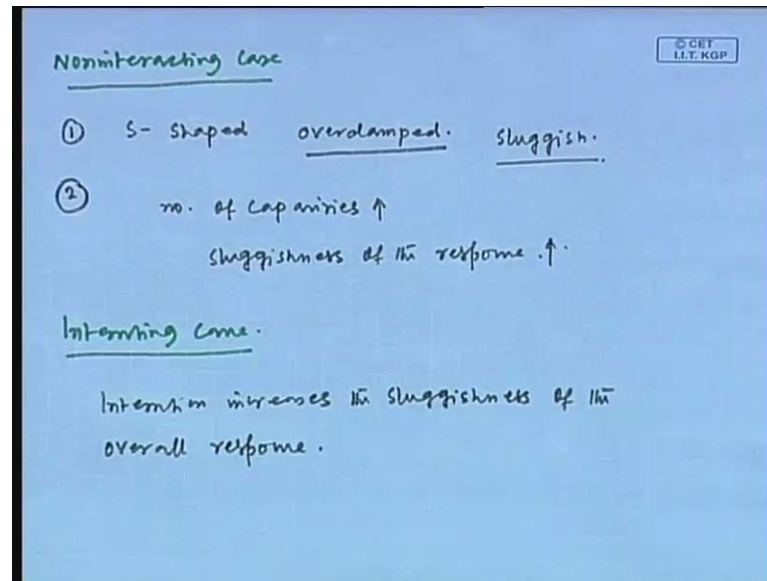 Noninteracting Case
© CET
I.I.T. KGP
① S-shaped overdamped. sluggish.
② no. of capacities ↑
sluggishness of the response. ↑.
Interacting Case.
Interaction increases the sluggishness of the
overall response.